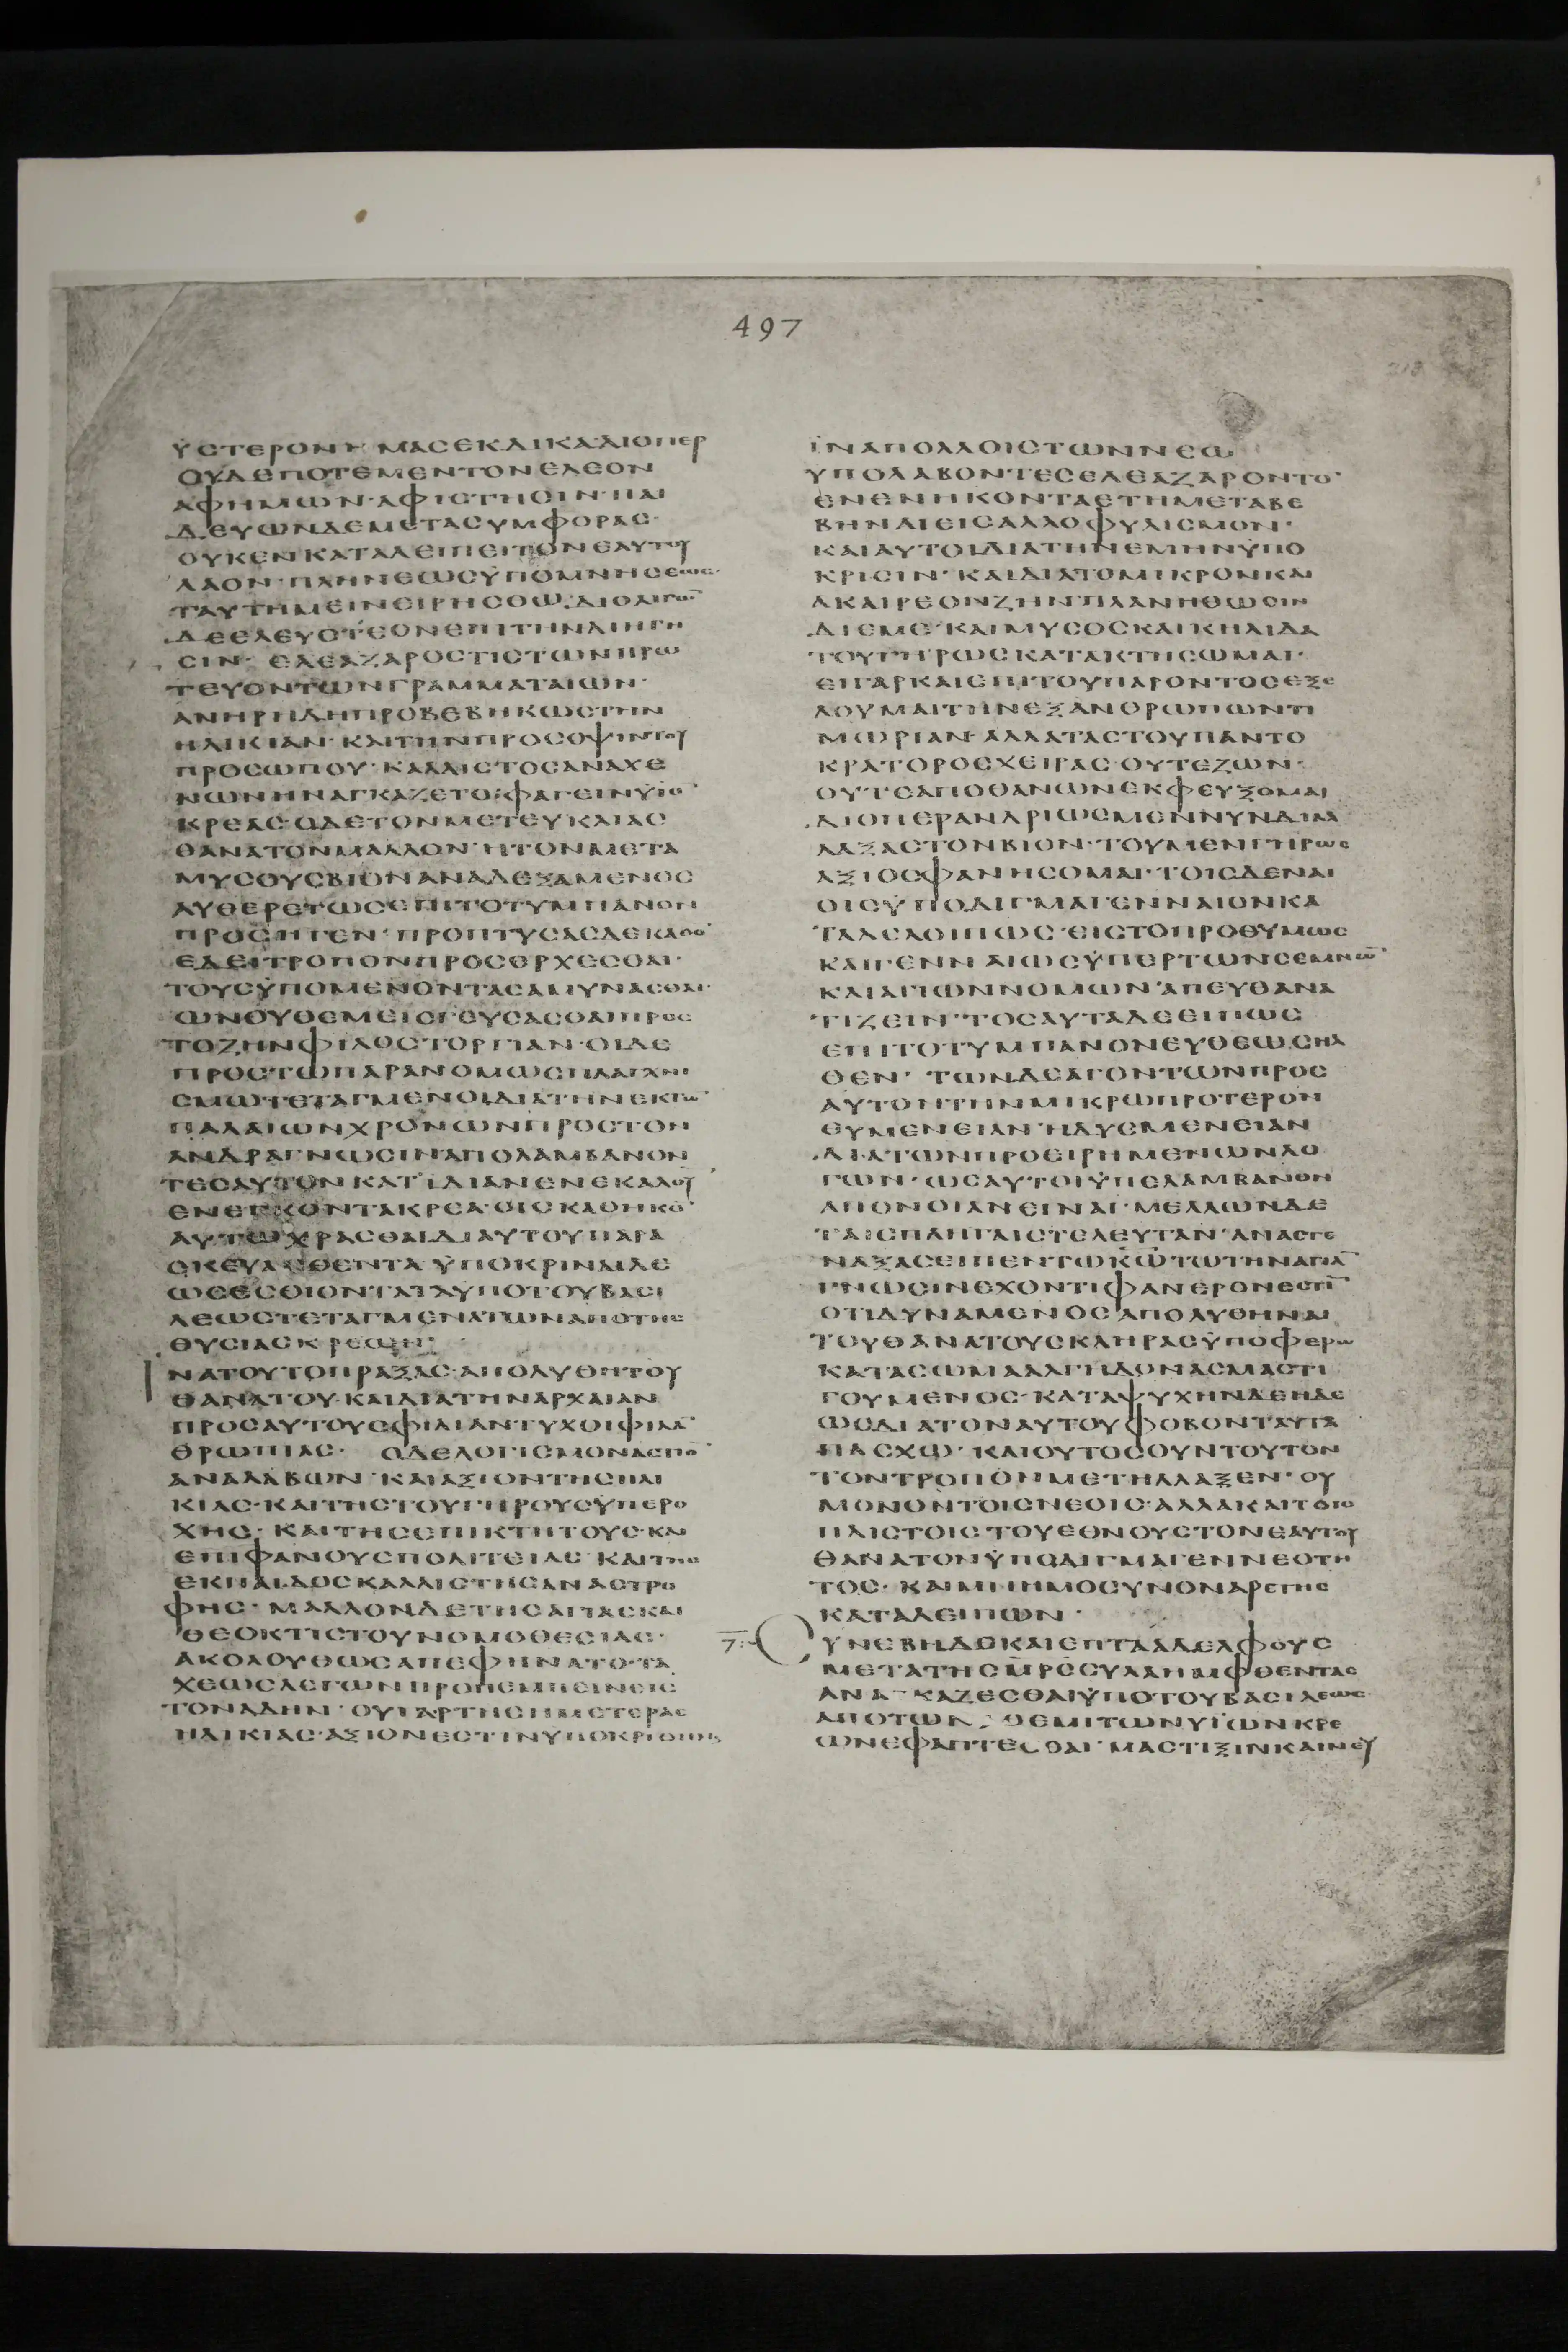 497
ΫСΤΕΡΟΝΗΜΑСΕΚΔΙΚΑ·ΔΙΟΠΕΡ
ΟΥΔΕΠΟΤΕΜΕΝΤΟΝΕΛΕΟΝ
ΑΦΗΜΩΝ·ΑΦΙСΤΗСΙΝ·ΠΑΙ
ΔΕΥΩΝΔΕΜΕΤΑСΥΜΦΟΡΑС·
ΟΥΚΕΝΚΑΤΑΛΕΙΠΕΙΤΟΝΕΑΥΤΟΥ
ΛΑΟΝ·ΠΛΗΝΕΩСΫΠΟΜΝΗСΕΩС·
ΤΑΥΤΗΜΕΙΝΕΙΡΗСΘΩ·ΔΙΟΛΙΓΩ̅
ΔΕΕΛΕΥСΤΕΟΝΕΠΙΤΗΝΔΙΗΓΗ
СΙΝ· ΕΛΕΑΖΑΡΟСΤΙСΤΩΝΠΡΩ
ΤΕΥΟΝΤΩΝΓΡΑΜΜΑΤΑΙΩΝ·
ΑΝΗΡΗΔΗΠΡΟΒΕΒΗΚΩСΤΗΝ
ΗΛΙΚΙΑΝ·ΚΑΙΤΗΝΠΡΟСΟΨΙΝΤΟΥ
ΠΡΟСΩΠΟΥ·ΚΑΛΛΙСΤΟСΑΝΑΧΕ
ΝΩΝΗΝΑΓΚΑΖΕΤΟ·ΦΑΓΕΙΝΥΪΟ̅
ΚΡΕΑС·ΟΔΕΤΟΝΜΕΤΕΥΚΛΙΑС
ΘΑΝΑΤΟΝΜΑΛΛΟΝ·ΗΤΟΝΜΕΤΑ
ΜΥСΟΥСΒΙΟΝΑΝΑΔΕΞΑΜΕΝΟС
ΑΥΘΕΡΕΤΩСΕΠΙΤΟΤΥΜΠΑΝΟΝ
ΠΡΟСΗΓΕΝ·ΠΡΟΠΤΥСΑСΔΕΚΑΘΟ̅
ΕΔΕΙΤΡΟΠΟΝΠΡΟСΕΡΧΕСΘΑΙ·
ΤΟΥСΫΠΟΜΕΝΟΝΤΑСΑΜΥΝΑСΘΑΙ·
ΩΝΟΥΘΕΜΕΙСΓΕΥСΑСΘΑΙΠΡΟС
ΤΟΖΗΝΦΙΛΟСΤΟΡΓΙΑΝ·ΟΙΔΕ
ΠΡΟСΤΩΠΑΡΑΝΟΜΩСΠΛΑΓΧΝΙ
СΜΩΤΕΤΑΓΜΕΝΟΙΔΙΑΤΗΝΕΚΤΩ̅
ΠΑΛΑΙΩΝΧΡΟΝΩΝΠΡΟСΤΟΝ
ΑΝΔΡΑΓΝΩСΙΝΑΠΟΛΑΜΒΑΝΟΝ
ΤΕСΑΥΤΟΝΚΑΤΪΔΙΑΝΕΝΕΚΑΛΟΥ
ΕΝΕΓΚΟΝΤΑΚΡΕΑ·ΟΙСΚΑΘΗΚΟ̅
ΑΥΤΩΧΡΑСΘΑΙΔΙΑΥΤΟΥΠΑΡΑ
СΚΕΥΑСΘΕΝΤΑΫΠΟΚΡΙΝΑΙΔΕ
ΩСΕСΘΙΟΝΤΑΤΑΥΠΟΤΟΥΒΑСΙ
ΛΕΩСΤΕΤΑΓΜΕΝΑΤΩΝΑΠΟΤΗС
ΘΥСΙΑСΚΡΕΩΝ·
ΙΝΑΤΟΥΤΟΠΡΑΞΑС·ΑΠΟΛΥΘΗΤΟΥ
ΘΑΝΑΤΟΥ·ΚΑΙΔΙΑΤΗΝΑΡΧΑΙΑΝ
ΠΡΟСΑΥΤΟΥСΦΙΛΙΑΝΤΥΧΟΙΦΙΛΑ̅
ΘΡΩΠΙΑС· ΟΔΕΛΟΓΙСΜΟΝΑСΠΟ̅
ΑΝΑΛΑΒΩΝ·ΚΑΙΑΞΙΟΝΤΗСΗΛΙ
ΚΙΑС·ΚΑΙΤΗСΤΟΥΓΗΡΟΥСΫΠΕΡΟ
ΧΗС·ΚΑΙΤΗСΕΠΙΚΤΗΤΟΥС·ΚΑΙ
ΕΠΙΦΑΝΟΥСΠΟΛΙΤΕΙΑС·ΚΑΙΤΗС
ΕΚΠΑΙΔΟСΚΑΛΛΙСΤΗСΑΝΑСΤΡΟ
ΦΗС·ΜΑΛΛΟΝΔΕΤΗСΑΓΙΑСΚΑΙ
ΘΕΟΚΤΙСΤΟΥΝΟΜΟΘΕСΙΑС·
ΑΚΟΛΟΥΘΩСΑΠΕΦΗΝΑΤΟ·ΤΑ
ΧΕΩСΛΕΓΩΝΠΡΟΠΕΜΠΕΙΝΕΙС
ΤΟΝΑΔΗΝ·ΟΥΓΑΡΤΗСΗΜΕΤΕΡΑС
ΗΛΙΚΙΑС·ΑΞΙΟΝΕСΤΙΝΥΠΟΚΡΙΘΗΝΑΙ
ΪΝΑΠΟΛΛΟΙСΤΩΝΝΕΩ̅
ΥΠΟΛΑΒΟΝΤΕСΕΛΕΑΖΑΡΟΝΤΟ̅
ΕΝΕΝΗΚΟΝΤΑΕΤΗΜΕΤΑΒΕ
ΒΗΝΑΙΕΙСΑΛΛΟΦΥΛΙСΜΟΝ·
ΚΑΙΑΥΤΟΙΔΙΑΤΗΝΕΜΗΝΫΠΟ
ΚΡΙСΙΝ·ΚΑΙΔΙΑΤΟΜΙΚΡΟΝΚΑΙ
ΑΚΑΙΡΕΟΝΖΗΝΠΛΑΝΗΘΩСΙΝ
ΔΙΕΜΕ·ΚΑΙΜΥСΟСΚΑΙΚΗΛΙΔΑ
ΤΟΥΓΗΡΩСΚΑΤΑΚΤΗСΩΜΑΙ·
ΕΙΓΑΡΚΑΙΕΠΙΤΟΥΠΑΡΟΝΤΟСΕΞΕ
ΛΟΥΜΑΙΤΗΝΕΞΑΝΘΡΩΠΩΝΤΙ
ΜΩΡΙΑΝ·ΑΛΛΑΤΑСΤΟΥΠΑΝΤΟ
ΚΡΑΤΟΡΟСΧΕΙΡΑС·ΟΥΤΕΖΩΝ·
ΟΥΤΕΑΠΟΘΑΝΩΝΕΚΦΕΥΞΟΜΑΙ
ΔΙΟΠΕΡΑΝΔΡΙΩСΜΕΝΝΥΝΔΙΑΛ
ΛΑΞΑСΤΟΝΒΙΟΝ·ΤΟΥΜΕΝΓΗΡΩС
ΑΞΙΟСΦΑΝΗСΟΜΑΙ·ΤΟΙСΔΕΝΑΙ
ΟΙСΫΠΟΔΙΓΜΑΓΕΝΝΑΙΟΝΚΑ
ΤΑΛΕΛΟΙΠΩС·ΕΙСΤΟΠΡΟΘΥΜΩС
ΚΑΙΓΕΝΝΑΙΩСΫΠΕΡΤΩΝСΕΜΝΩ̅
ΚΑΙΑΓΙΩΝΝΟΜΩΝ·ΑΠΕΥΘΑΝΑ
ΤΙΖΕΙΝ·ΤΟСΑΥΤΑΔΕΕΙΠΩС
ΕΠΙΤΟΤΥΜΠΑΝΟΝΕΥΘΕΩСΗΛ
ΘΕΝ· ΤΩΝΔΕΑΓΟΝΤΩΝΠΡΟС
ΑΥΤΟΝΤΗΝΜΙΚΡΩΠΡΟΤΕΡΟΝ
ΕΥΜΕΝΕΙΑΝ·ΗΔΥСΜΕΝΕΙΑΝ
ΔΙΑΤΩΝΠΡΟΕΙΡΗΜΕΝΩΝΛΟ
ΓΩΝ·ΩСΑΥΤΟΙΫΠΕΛΑΜΒΑΝΟΝ
ΑΠΟΝΟΙΑΝΕΙΝΑΙ·ΜΕΛΛΩΝΔΕ
ΤΑΙСΠΛΗΓΑΙСΤΕΛΕΥΤΑΝ·ΑΝΑСΤΕ
ΝΑΞΑСΕΙΠΕΝΤΩΚΩ̅ΤΩΤΗΝΑΓΙΑ̅
ΓΝΩСΙΝΕΧΟΝΤΙΦΑΝΕΡΟΝΕСΤΙ̅
ΟΤΙΔΥΝΑΜΕΝΟСΑΠΟΛΥΘΗΝΑΙ
ΤΟΥΘΑΝΑΤΟΥСΚΛΗΡΑСΫΠΟΦΕΡΩ
ΚΑΤΑСΩΜΑΑΛΓΗΔΟΝΑСΜΑСΤΙ
ΓΟΥΜΕΝΟС·ΚΑΤΑΨΥΧΗΝΔΕΗΔΕ
ΩСΔΙΑΤΟΝΑΥΤΟΥΦΟΒΟΝΤΑΥΤΑ
ΠΑСΧΩ·ΚΑΙΟΥΤΟСΟΥΝΤΟΥΤΟΝ
ΤΟΝΤΡΟΠΟΝΜΕΤΗΛΛΑΞΕΝ·ΟΥ
ΜΟΝΟΝΤΟΙСΝΕΟΙС·ΑΛΛΑΚΑΙΤΟΙС
ΠΛΙСΤΟΙСΤΟΥΕΘΝΟΥСΤΟΝΕΑΥΤΟΥ
ΘΑΝΑΤΟΝΫΠΟΔΙΓΜΑΓΕΝΝΕΟΤΗ
ΤΟС·ΚΑΙΜΝΗΜΟСΥΝΟΝΑΡΕΤΗС
ΚΑΤΑΛΕΙΠΩΝ·
СΥΝΕΒΗΔΕΚΑΙΕΠΤΑΑΔΕΛΦΟΥС
ΜΕΤΑΤΗСΜ̅Ρ̅Ο̅СΥΛΛΗΜΦΘΕΝΤΑС
ΑΝΑΓΚΑΖΕСΘΑΙΫΠΟΤΟΥΒΑСΙΛΕΩС
ΑΠΟΤΩΝΑΘΕΜΙΤΩΝΥΪΩΝΚΡΕ
ΩΝΕΦΑΠΤΕСΘΑΙ·ΜΑСΤΙΞΙΝΚΑΙΝΕΥ